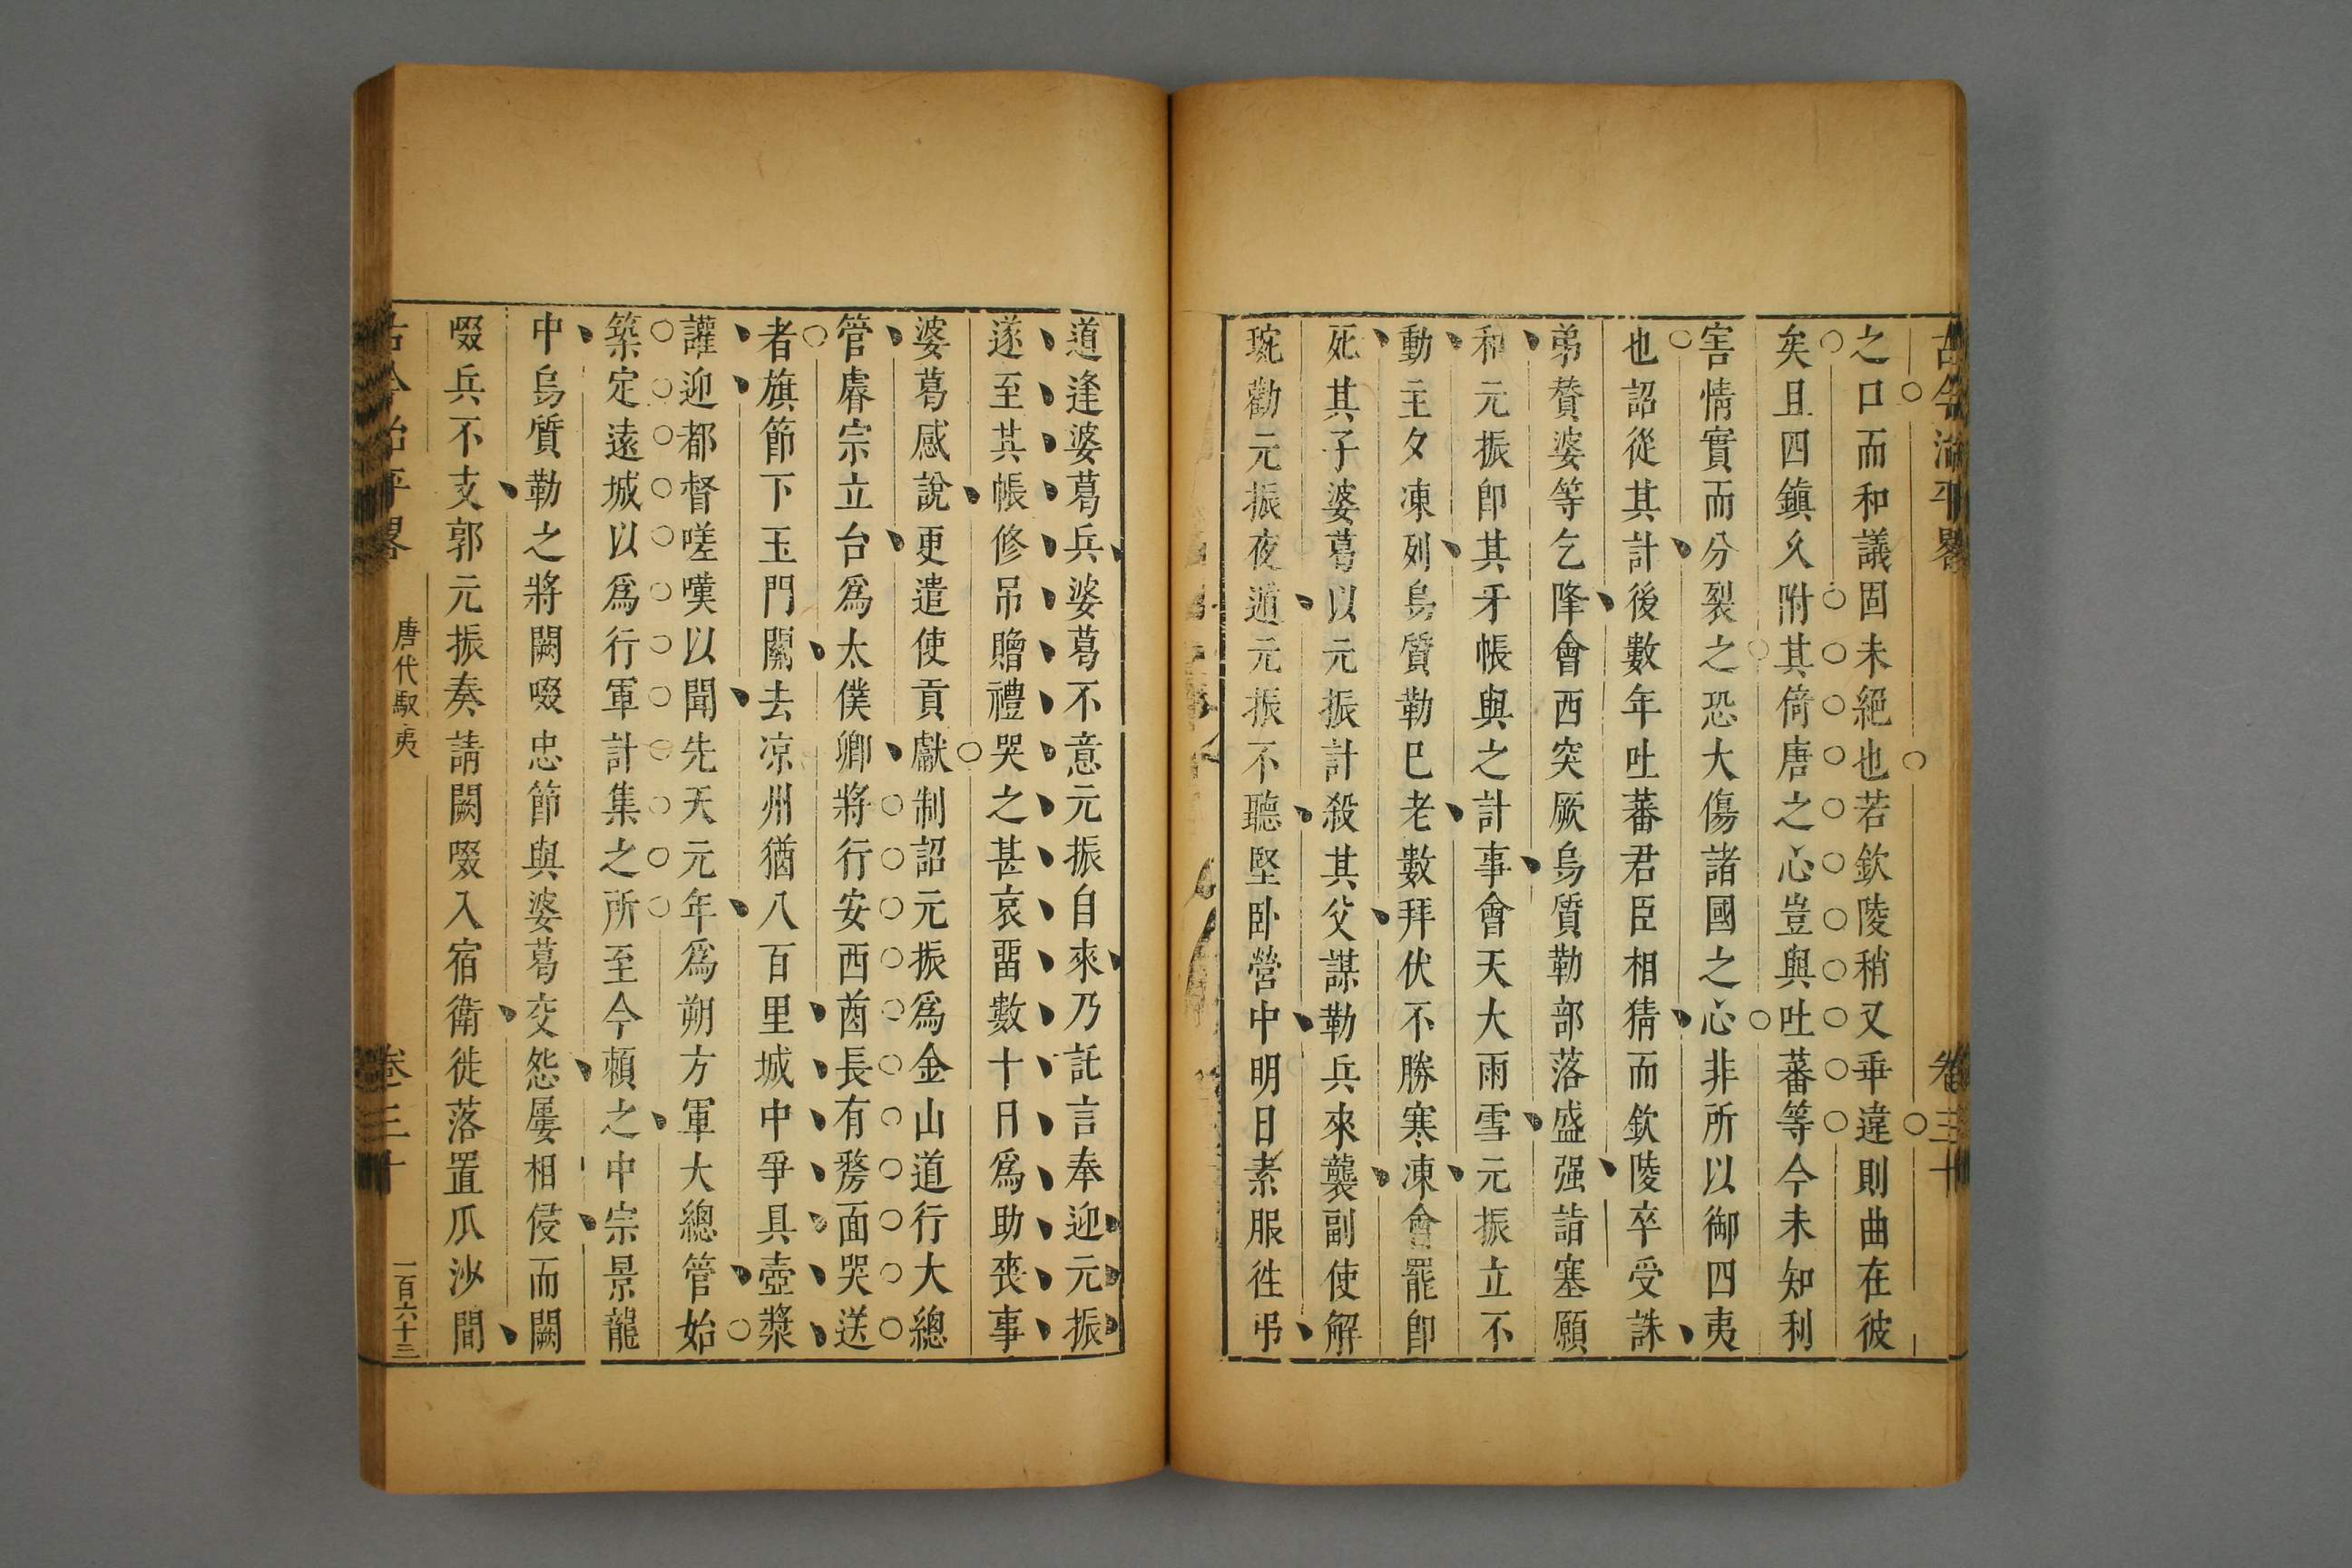 古今治平畧
卷三十
之口而和議固未絕也若欽陵稍又乖違則曲在彼
矣且四鎮久附其倚唐之心豈與吐蕃等今未知利
害情實而分裂之恐大傷諸國之心非所以御四夷
也詔從其計後數年吐蕃君臣相猜而欽陵卒受誅
弟贊婆等乞降會西突厥烏質勒部落盛强詣塞願
和元振卽其牙帳與之計事會天大雨雪元振立不
動主夕凍列烏質勒已老數拜伏不勝寒凍會罷卽
死其子婆葛以元振計殺其父謀勒兵來襲副使解
琬勸元振夜遁元振不聽堅卧營中明日素服徃弔
道逢婆葛兵婆葛不意元振自來乃託言奉迎元振
遂至其帳修吊贈禮哭之甚哀畱數十日爲助喪事
婆葛感說更遣使貢獻制詔元振爲金山道行大總
管睿宗立台爲太僕卿將行安西酋長有剺面哭送
者旗節下玉門關去凉州猶八百里城中爭具壺漿
讙迎都督嗟嘆以聞先天元年爲朔方軍大總管始
築定遠城以爲行軍計集之所至今賴之中宗景龍
中烏質勒之將闕啜忠節與婆葛交怨屢相侵而闕
啜兵不支郭元振奏請闕啜入宿衛徙落置瓜沙間
古今治平畧
唐代馭夷
卷三十
一百六十三